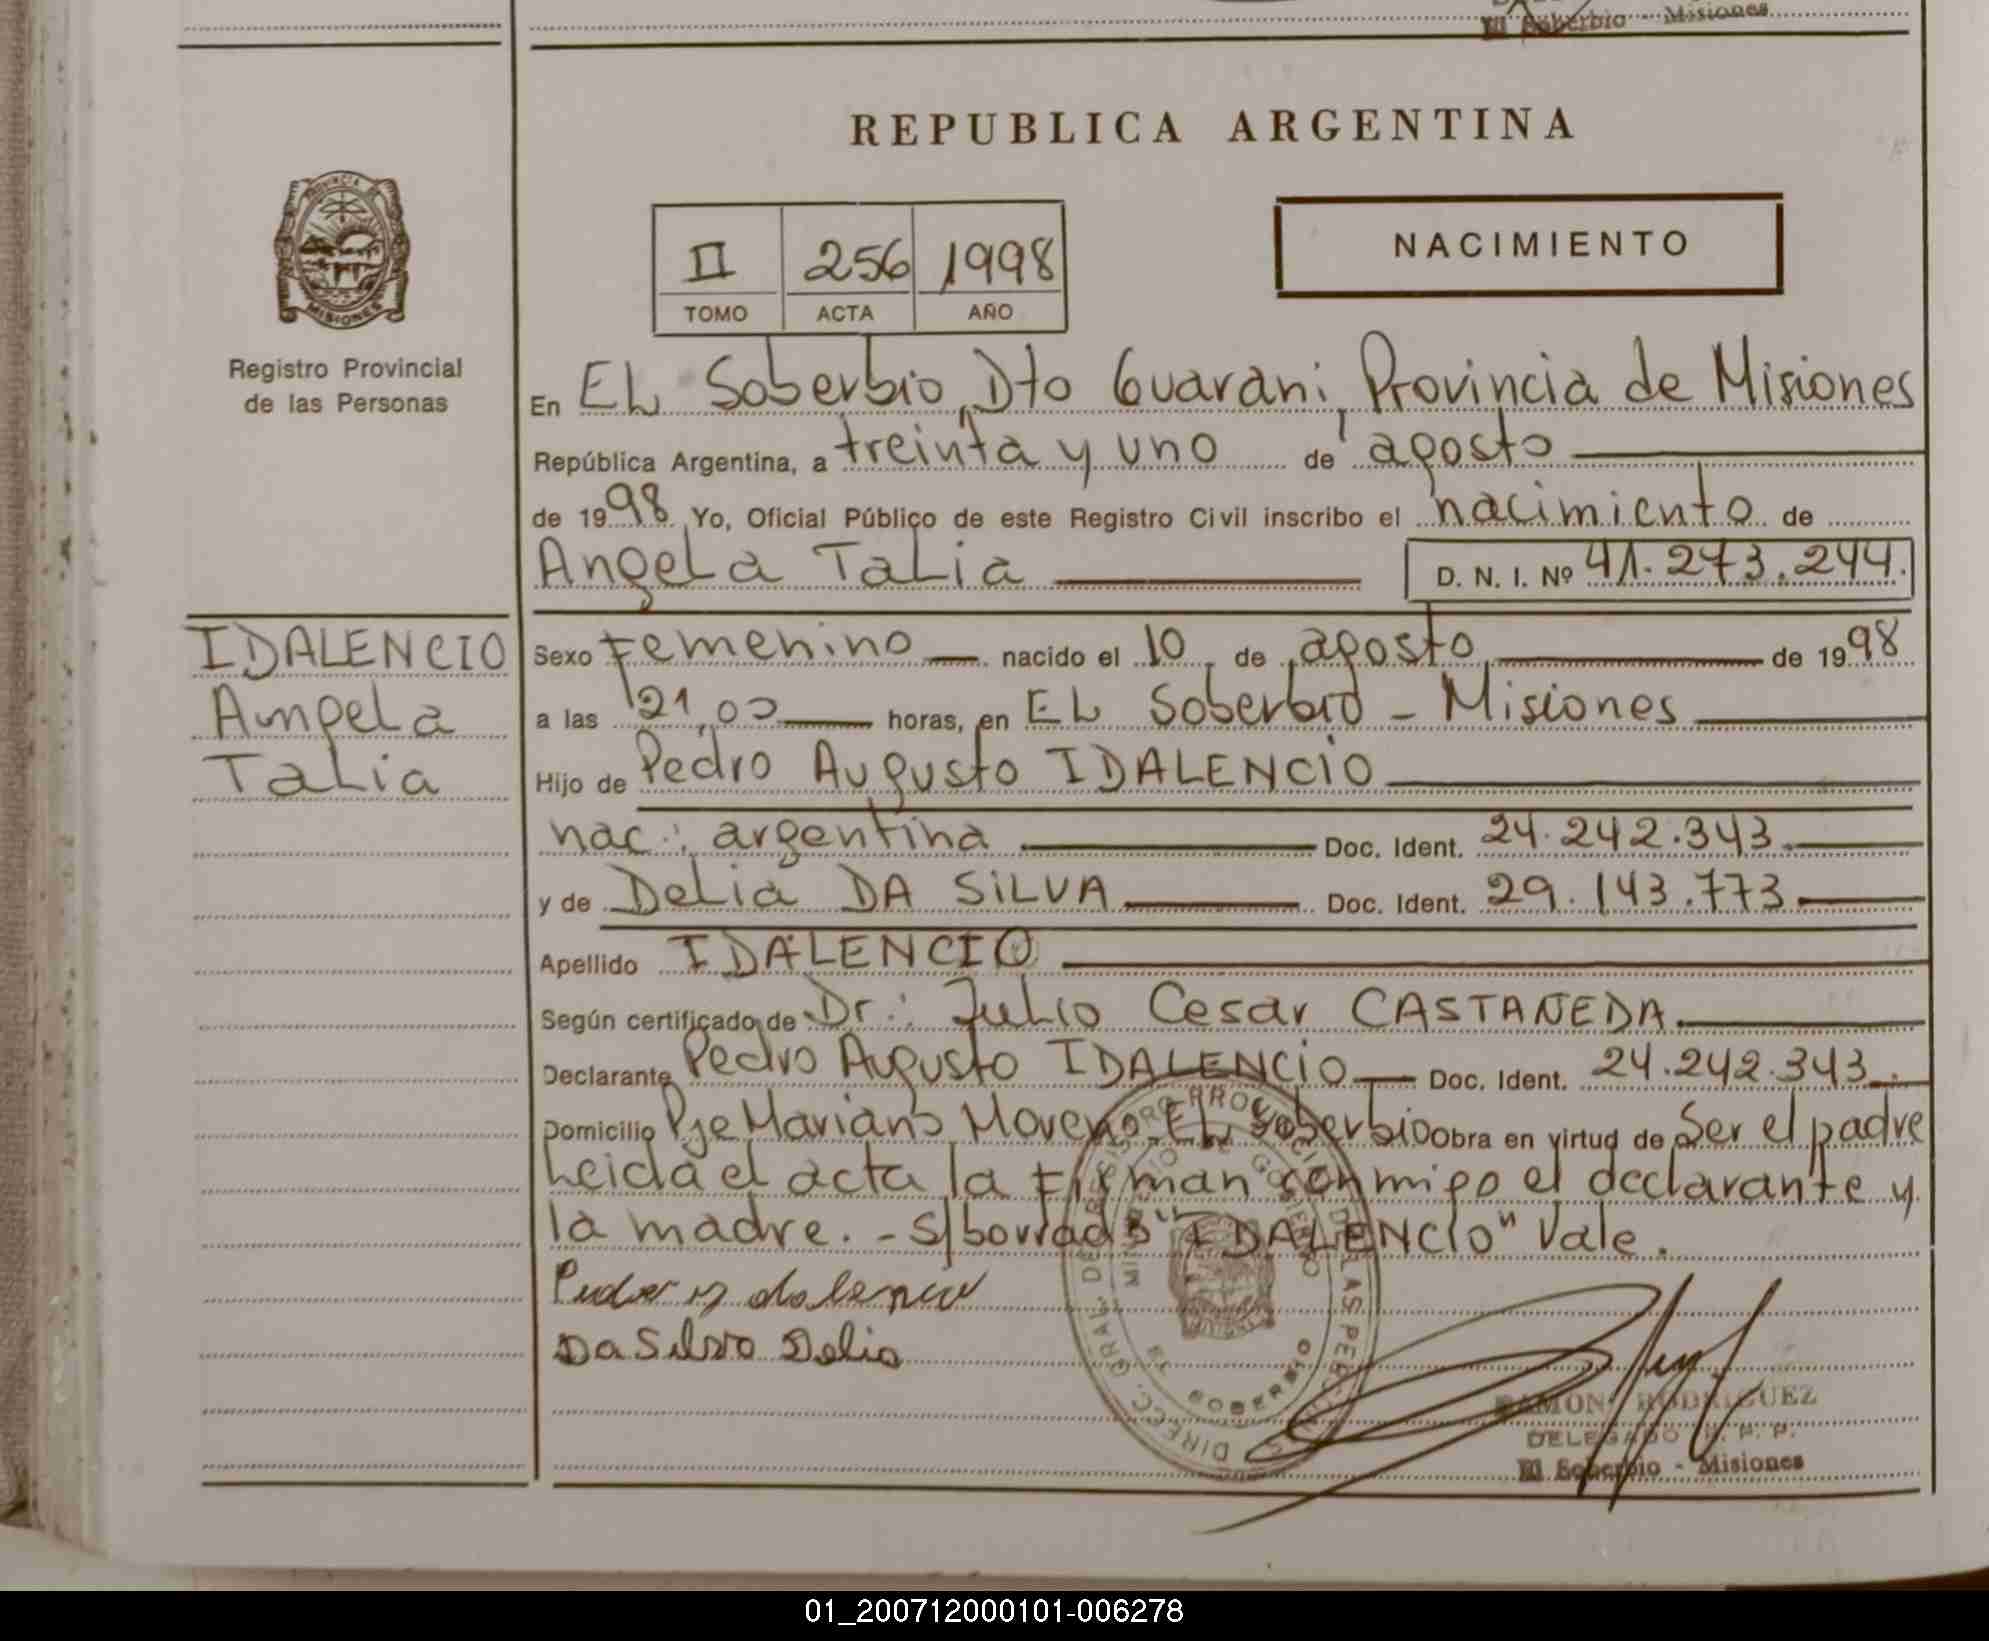 El Soberbio - Misiones
REPUBLICA ARGENTINA
PROVINCIA DE
MISIONES
Registro Provincial
de las Personas
II 256 1998
TOMO ACTA AÑO
NACIMIENTO
En EL Soberbio, Dto Guarani, Provincia de Misiones
República Argentina, a treinta y uno de agosto
de 1998 Yo, Oficial Público de este Registro Civil inscribo el nacimiento de
Angela Talia D. N. I. Nº 41.273.244.
IDALENCIO
Angela
Talia
Sexo Femenino nacido el 10 de agosto de 1998
a las 21,00 horas, en EL Soberbio - Misiones
Hijo de Pedro Augusto IDALENCIO
nac.: argentina Doc. Ident. 24.242.343.
y de Delia DA SILVA Doc. Ident. 29.143.773
Apellido IDALENCIO
Según certificado de Dr.: Julio Cesar CASTAÑEDA
Declarante Pedro Augusto IDALENCIO Doc. Ident. 24.242.343.
Domicilio Pje Mariano Moreno EL Soberbio Obra en virtud de Ser el padre
Leida el acta la firman conmigo el declarante y
la madre. - S/borrado "IDALENCIO" Vale.
Da Silva Delia
DIRECC. GRAL. DE REGISTRO PROVINCIAL DE LAS PERSONAS
MINISTERIO DE GOBIERNO
EL SOBERBIO
RAMON RODRIGUEZ
DELEGADO R. P. P.
El Soberbio - Misiones
01_200712000101-006278